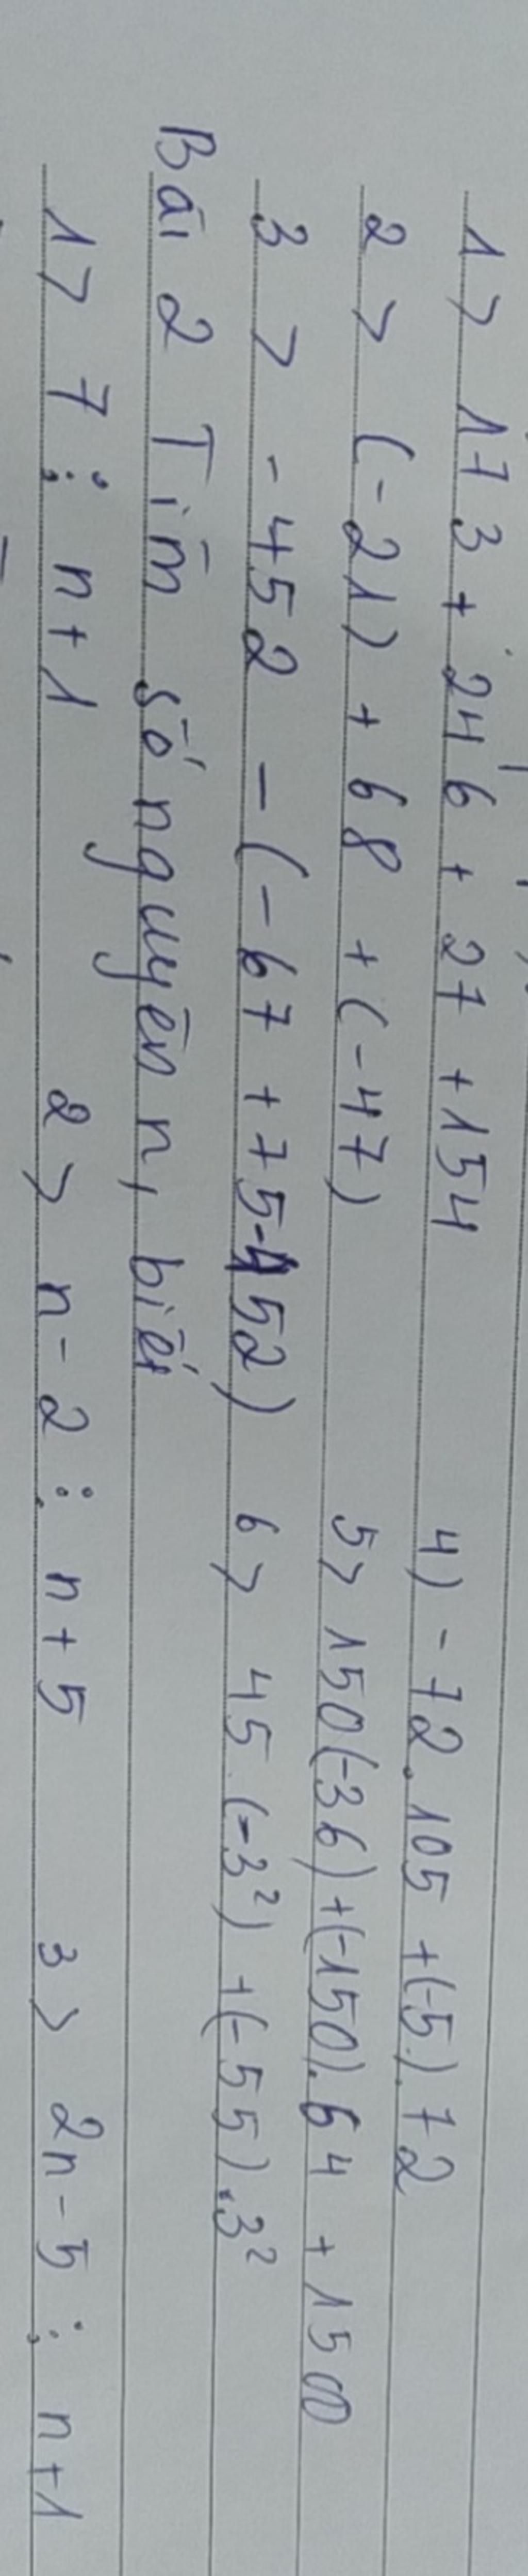 1> 173 + 246 + 27 + 154 4) -72.105 +(-5).72
2> (-21) + 68 + (-47) 5> 150(-36)+(-150).64 + 1500
3> -452 - (-67 + 75-452) 6> 45.(-3²) +(-55).3²
Bài 2 Tìm số nguyên n, biết
1> 7 ⋮ n+1 2> n-2 ⋮ n+5 3> 2n-5 ⋮ n+1